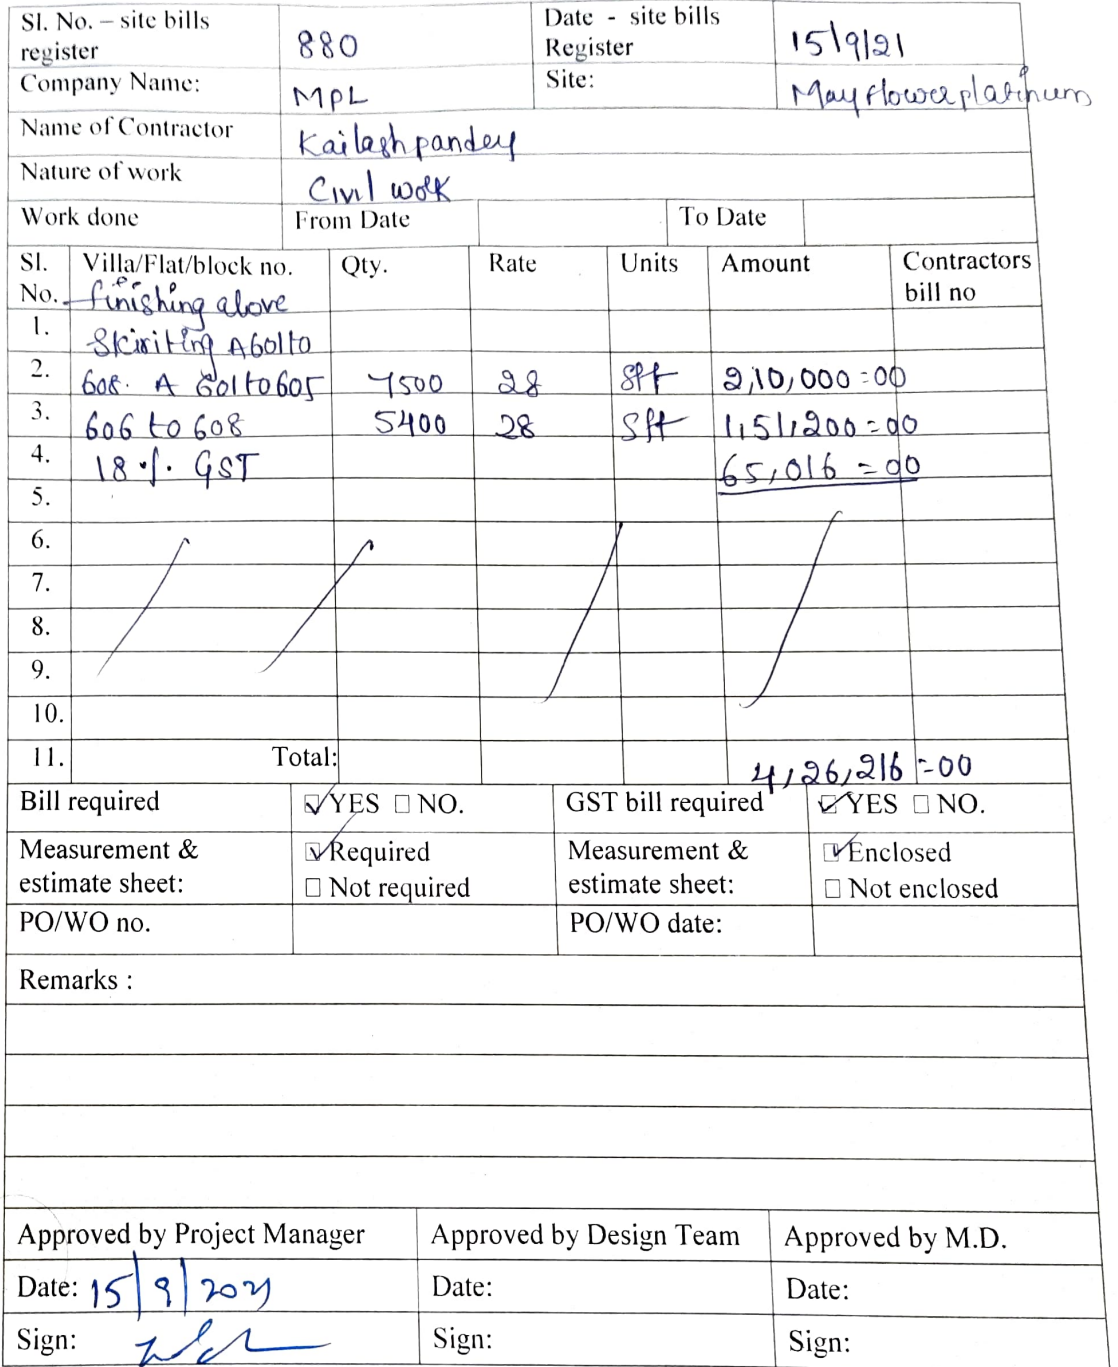 Sl. No. – site bills register 880 Date - site bills Register 15/9/21
Company Name: MPL Site: Mayflower platinum
Name of Contractor Kailash pandey
Nature of work Civil work
Work done From Date To Date
Sl. No. Villa/Flat/block no. Qty. Rate Units Amount Contractors bill no
finishing above
1. Skiriting A601to
2. 608. A 601 to 605 7500 28 Sft 2,10,000=00
3. 606 to 608 5400 28 Sft 1,51,200=00
4. 18%. GST 65,016=00
5.
6.
7.
8.
9.
10.
11. Total: 4,26,216=00
Bill required ☑YES ☐ NO. GST bill required ☑YES ☐ NO.
Measurement & estimate sheet: ☑Required ☐ Not required Measurement & estimate sheet: ☑Enclosed ☐ Not enclosed
PO/WO no. PO/WO date:
Remarks :
Approved by Project Manager Approved by Design Team Approved by M.D.
Date: 15/9/2021 Date: Date:
Sign: Sign: Sign: